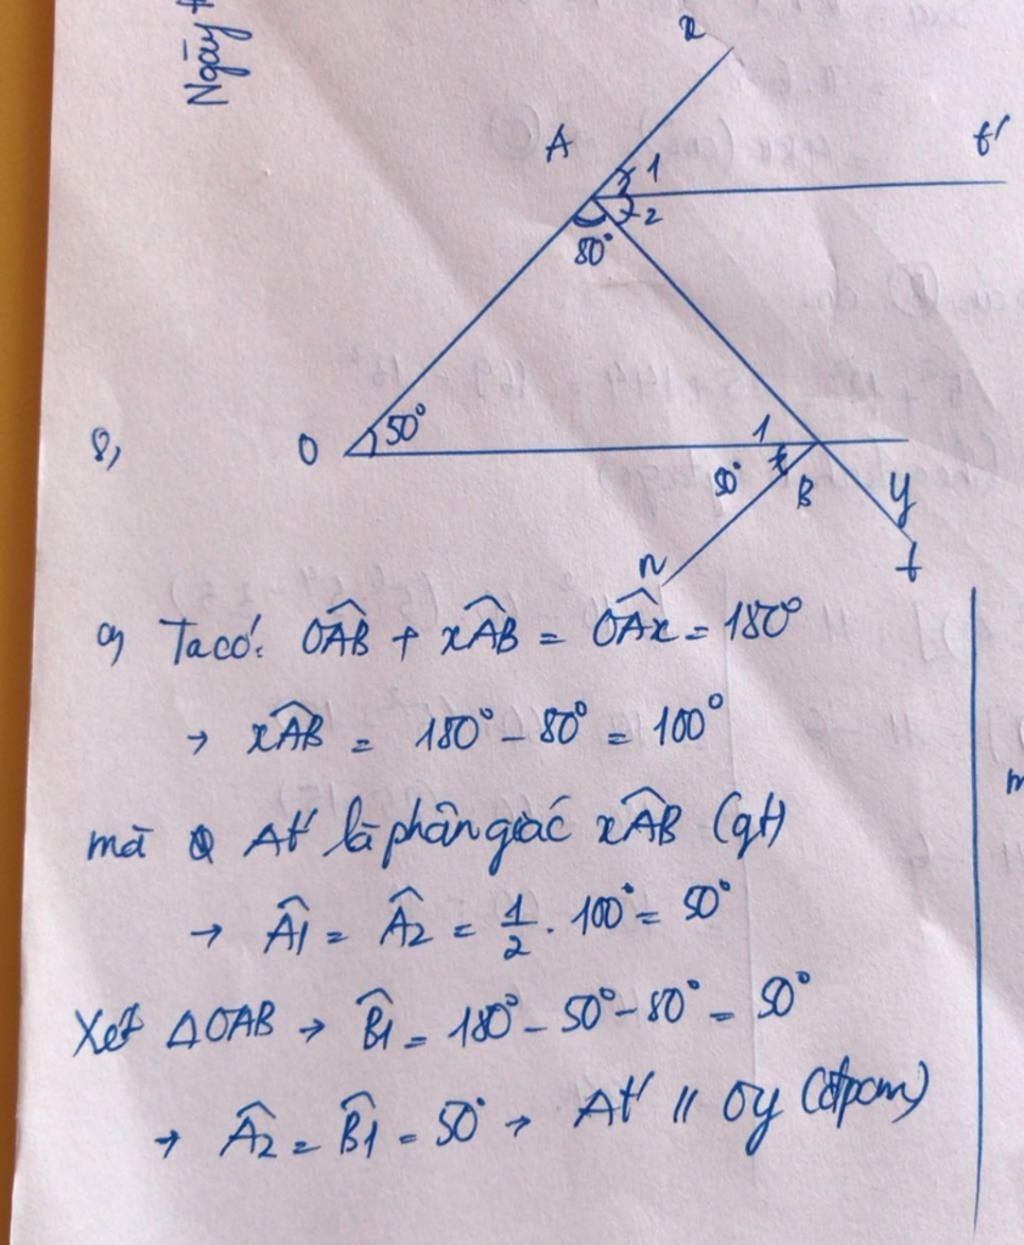 Ngày
x
A
1
t'
2
80°
8,
O
50°
1
50°
B
y
n
t
a) Ta có: OÂB + xÂB = OÂx = 180°
→ xÂB = 180° - 80° = 100°
mà At' là phân giác xÂB (gt)
→ Â1 = Â2 = 1/2 . 100° = 50°
Xét ΔOAB → B̂1 = 180° - 50° - 80° = 50°
→ Â2 = B̂1 = 50° → At' // Oy (đpcm)